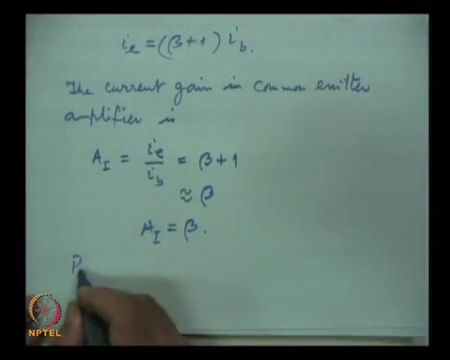 i_e = (β+1) i_b.
The current gain in common emitter
amplifier is
A_I = i_e / i_b = β+1
≈ β
A_I = β.
P
NPTEL